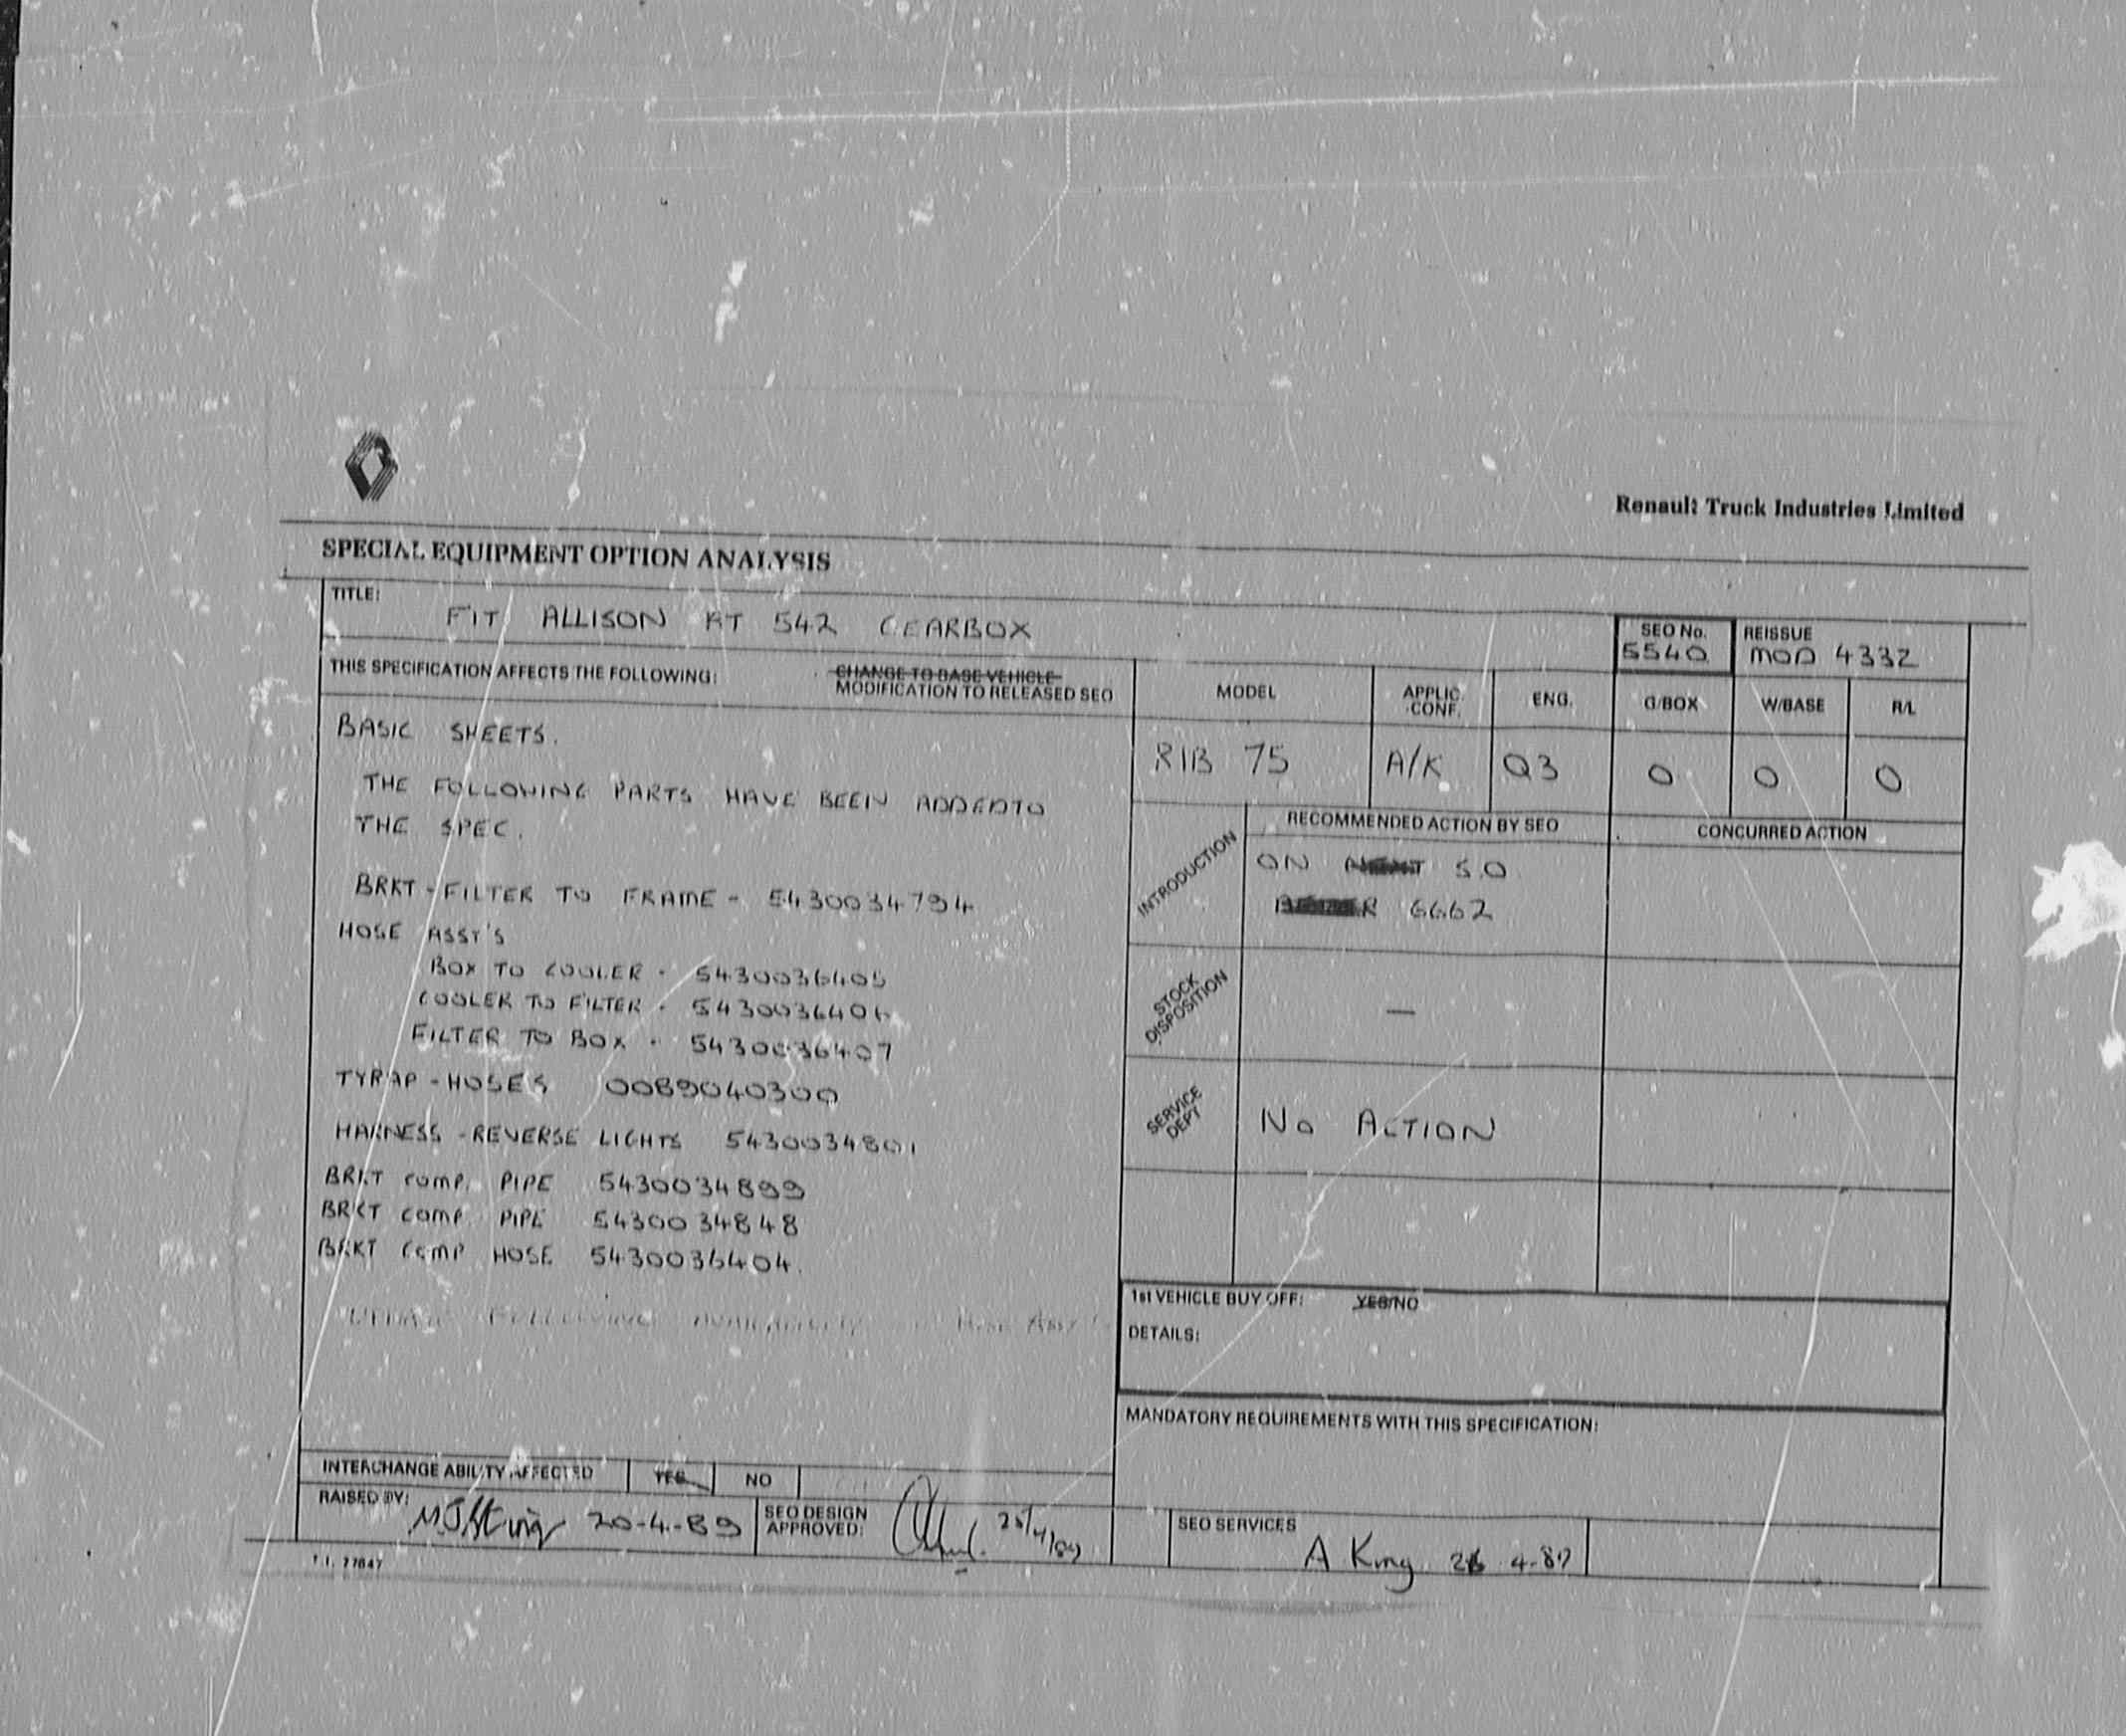 Renault Truck Industries Limited
SPECIAL EQUIPMENT OPTION ANALYSIS
TITLE:
FIT ALLISON AT 542 GEARBOX
SEO No.
5540
REISSUE
MOD 4332
THIS SPECIFICATION AFFECTS THE FOLLOWING:
CHANGE TO BASE VEHICLE
MODIFICATION TO RELEASED SEO
MODEL
APPLIC. CONF.
ENG.
G/BOX
W/BASE
R/L
R1B 75
A/K
Q3
0
0
0
BASIC SHEETS.
THE FOLLOWING PARTS HAVE BEEN ADDED TO
THE SPEC.
BRKT - FILTER TO FRAME - 5430034794
HOSE ASSY'S
BOX TO COOLER - 5430036405
COOLER TO FILTER - 5430036406
FILTER TO BOX - 5430036407
TYRAP - HOSES 0089040300
HARNESS - REVERSE LIGHTS 5430034801
BRKT COMP. PIPE 5430034899
BRKT COMP PIPE 5430034848
BRKT COMP HOSE 5430036404.
FOLLOWING HOSE ASSY
INTRODUCTION
RECOMMENDED ACTION BY SEO
CONCURRED ACTION
ON S.O
6662
STOCK DISPOSITION
—
SERVICE DEPT
No ACTION
1st VEHICLE BUY OFF: YES/NO
DETAILS:
MANDATORY REQUIREMENTS WITH THIS SPECIFICATION:
INTERCHANGE ABILITY AFFECTED YES NO
RAISED BY:
20-4-89
SEO DESIGN
APPROVED:
25/4/89
SEO SERVICES
A King 26 4-89
T.I. 77847